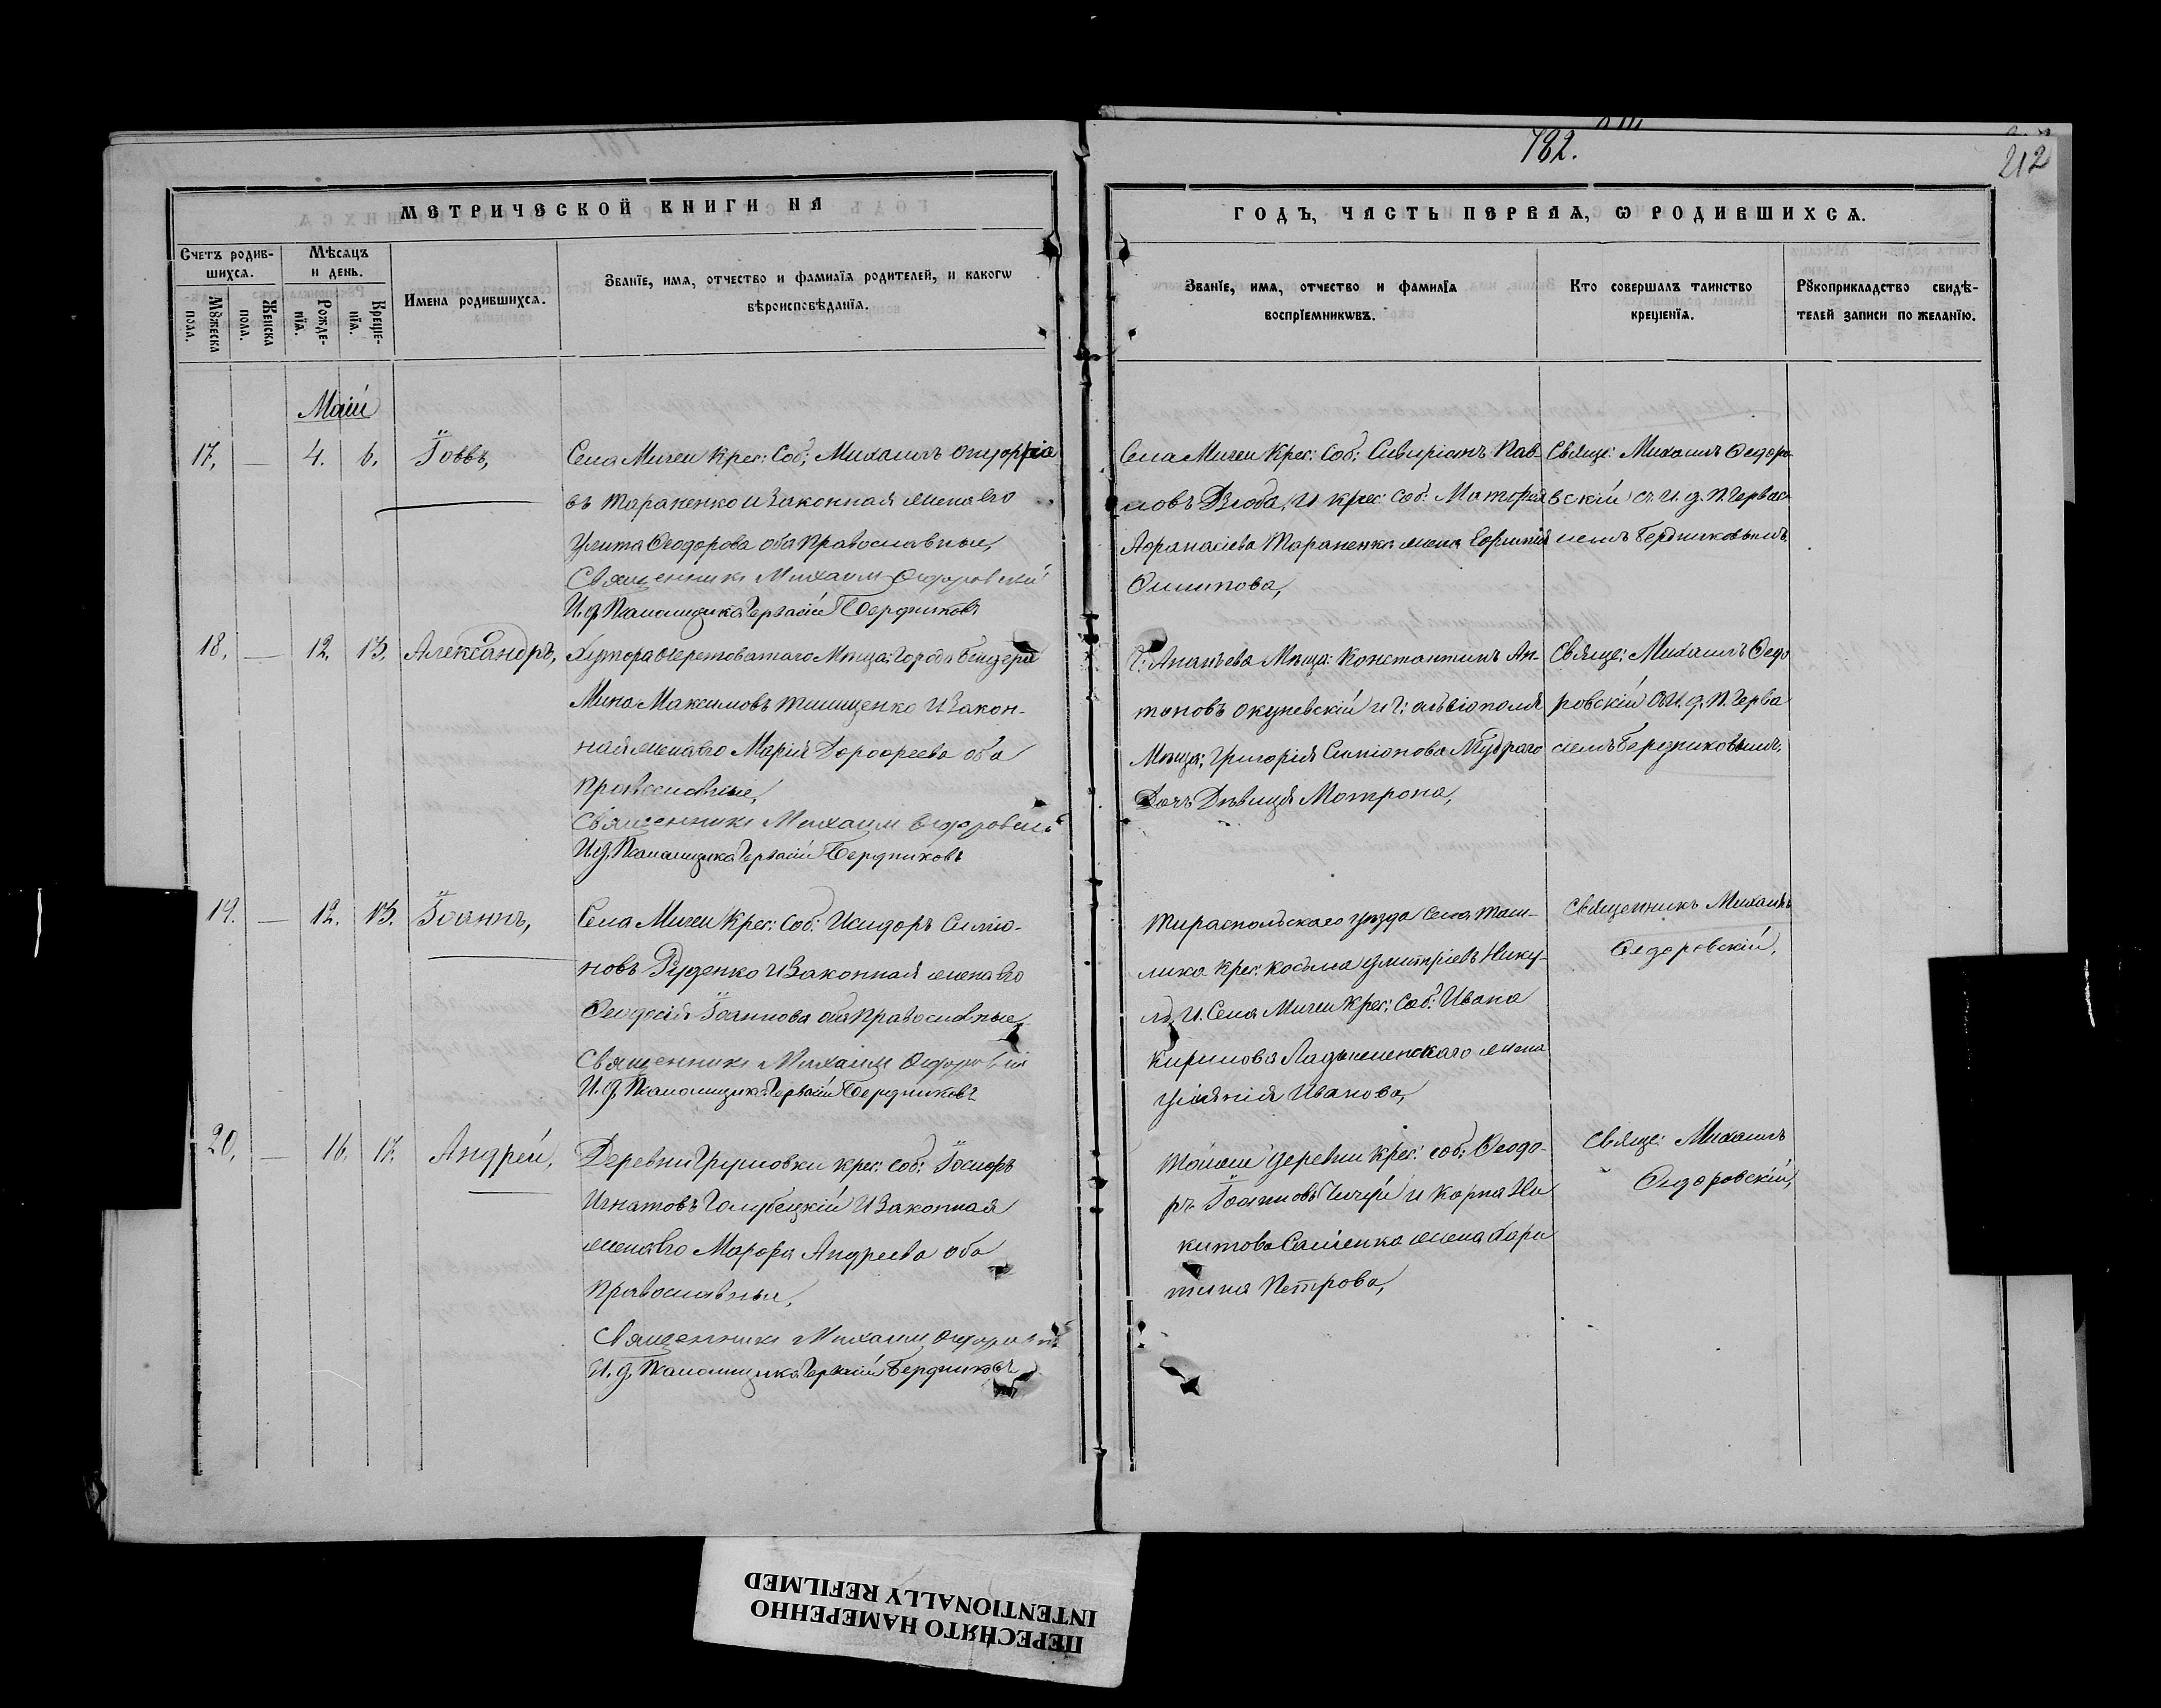 182.
212
МЕТРИЧЕСКОЙ КНИГИ НА
ГОДЪ, ЧАСТЬ ПЕРВАЯ, Ѡ РОДИВШИХСѦ.
Счетъ родив-
шихсѧ.
Мѣсѧцъ
и день.
Мꙋжеска
пола.
Женска
пола.
Рожде-
нїѧ.
Креще-
нїѧ.
Имена родившихсѧ.
Званїе, имѧ, отчество и фамилїѧ родителей, и какогѡ
вѣроисповѣданїѧ.
Званїе, имѧ, отчество и фамилїѧ
воспрїемникѡвъ.
Кто совершалъ таинство
крещенїѧ.
Рꙋкоприкладство свидѣ-
телей записи по желанїю.
Маій
17. — 4. 6. Іовъ,
Села Мигеи Крес: Соб:, Михаилъ
въ Тараненко и Законная жена его
Улита Ѳеодорова оба Православные,
Священникъ Михаилъ Ѳедоровский
И. д. Псаломщика Гервасій Бердниковъ
Села Мигеи Крес: Соб: Пав-
ловъ Дзюба, и крес: соб:
Афанасіева Тараненка жена
Осипова,
Священ: Михаилъ Ѳедоро-
вскій съ И. д. П. Гервас-
іемъ Бердниковымъ
18. — 12. 13. Александръ,
Хутора Мѣща: Города
Мина Максимовъ Тимищенко и Закон-
ная жена его Марія Дорофеева оба
Православные,
Священникъ Михаилъ Ѳедоровскій
И. д. Псаломщика Гервасій Бердниковъ
Г: Ананьева Мѣща: Константинъ Ан-
тоновъ Окуневскій и Г: Ольвіополя
Мѣща: Григорія Симіонова Мудраго
Дочь Дѣвица Мотрона,
Священ: Михаилъ Ѳедо
ровскій съ И. д. П. Герва
сіемъ Бердниковымъ,
19. — 12. 13. Іоаннъ,
Села Мигеи Крес: Соб: Исидоръ Симіо-
новъ Руденко и Законная жена его
Ѳеодосія Іоаннова оба Православные,
Священникъ Михаилъ Ѳедоровскій
И. д. Псаломщика Гервасій Бердниковъ
Тираспольскаго уѣзда села Таш-
лика крес: Косьма Дмитріевъ Нику-
и Села Мигеи Крес: Соб: Ивана
Кирилова Ладыженскаго жена
Іуліянія Иванова,
Священникъ Михаилъ
Ѳедоровскій,
20. — 16. 17. Андрей,
Деревни Грушовки крес: соб: Іосифъ
Игнатовъ Голубецкій и Законная
жена его Марфа Андреева оба
Православные,
Священникъ Михаилъ Ѳедоровскій
И. д. Псаломщика Гервасій Бердниковъ
Тойже деревни крес: соб: Ѳеодо-
ръ Іоанновъ и Карпа Ни
китова Сашенка жена Хари
тина Петрова,
Священ: Михаилъ
Ѳедоровскій,
ПЕРЕСНЯТО НАМЕРЕННО
INTENTIONALLY REFILMED